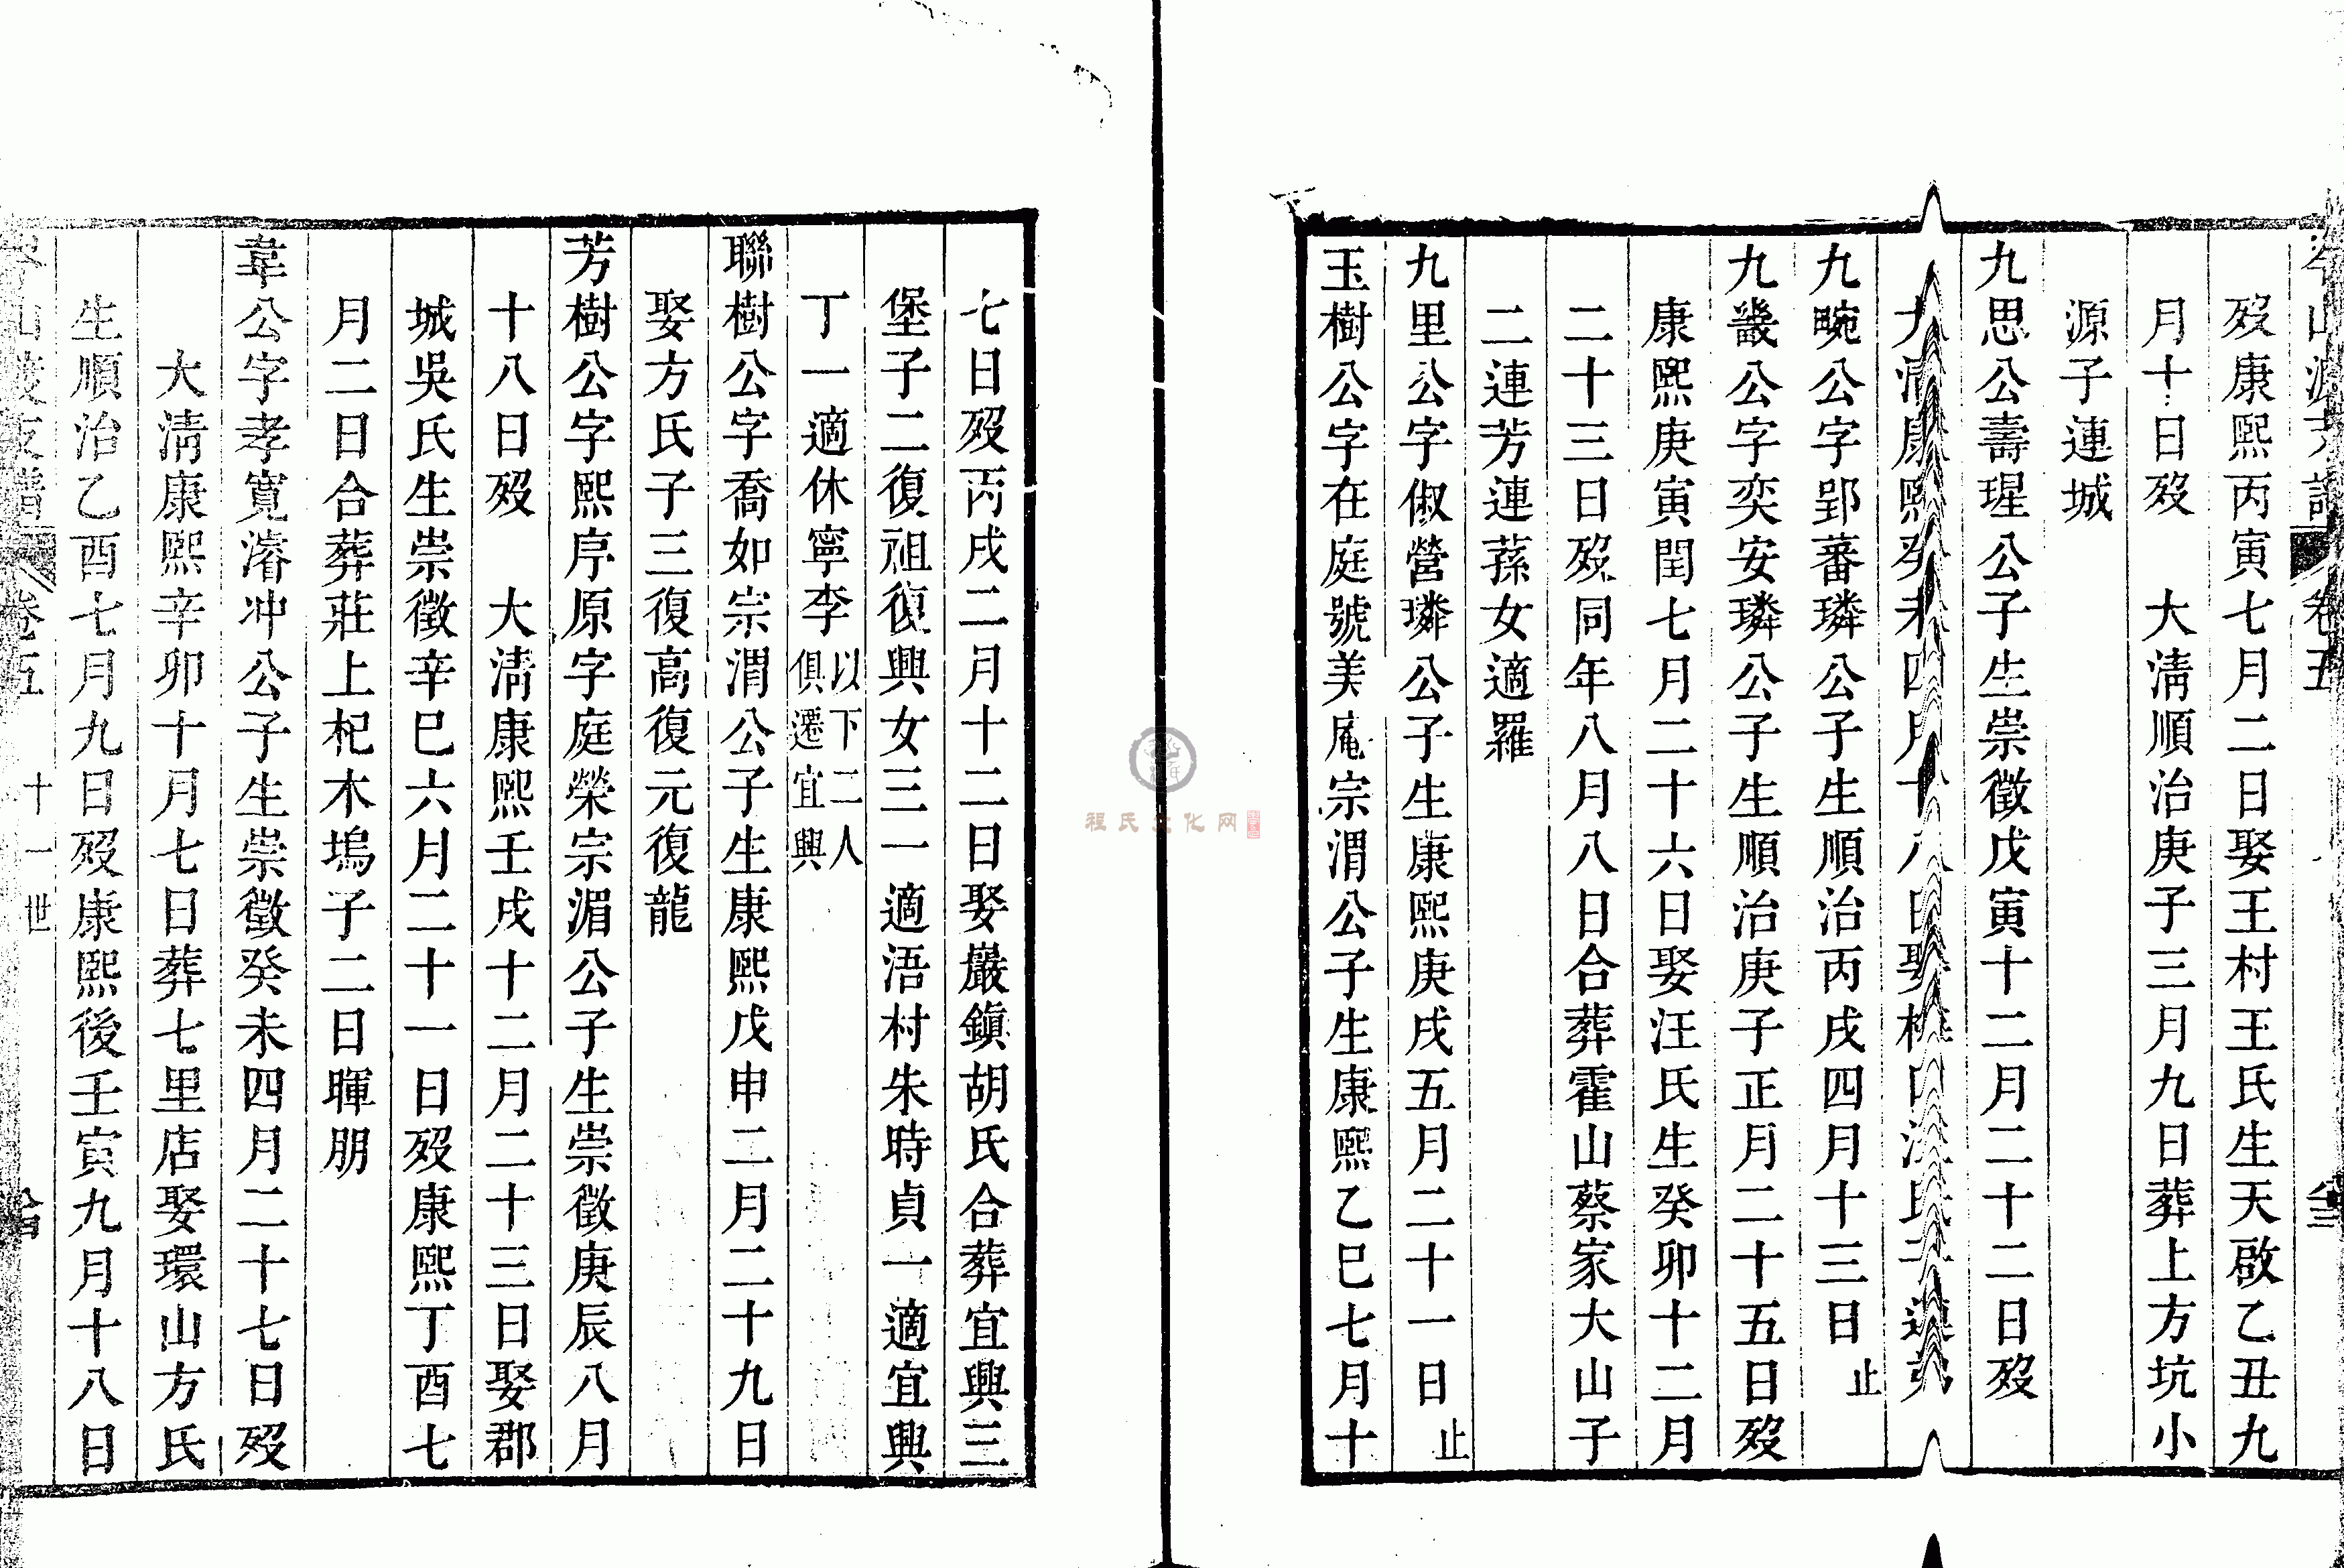 歿康熙丙寅七月二日娶王村王氏生天啟乙丑九
月十日歿　大清順治庚子三月九日葬上方坑小
源子連城
九思公壽瑆公子生崇徵戊寅十二月二十二日歿
大清康熙癸未四月十八日娶
九畹公字郢蕃璘公子生順治丙戌四月十三日止
九畿公字奕安璘公子生順治庚子正月二十五日歿
康熙庚寅閏七月二十六日娶汪氏生癸卯十二月
二十三日歿同年八月八日合葬霍山蔡家大山子
二連芳連蓀女適羅
九里公字俶營璘公子生康熙庚戌五月二十一日止
玉樹公字在庭號美庵宗渭公子生康熙乙巳七月十
七日歿丙戌二月十二日娶嚴鎮胡氏合葬宜興三
堡子二復祖復興女三一適浯村朱時貞一適宜興
丁一適休寧李以下二人俱遷宜興
聯樹公字喬如宗渭公子生康熙戊申二月二十九日
娶方氏子三復高復元復龍
芳樹公字熙序原字庭榮宗湄公子生崇徵庚辰八月
十八日歿　大清康熙壬戌十二月二十三日娶郡
城吳氏生崇徵辛巳六月二十一日歿康熙丁酉七
月二日合葬莊上杞木塢子二日暉朋
韋公字孝寬濬冲公子生崇徵癸未四月二十七日歿
大清康熙辛卯十月七日葬七里店娶環山方氏
生順治乙酉七月九日歿康熙後壬寅九月十八日
卷五　十一世
程氏文化网